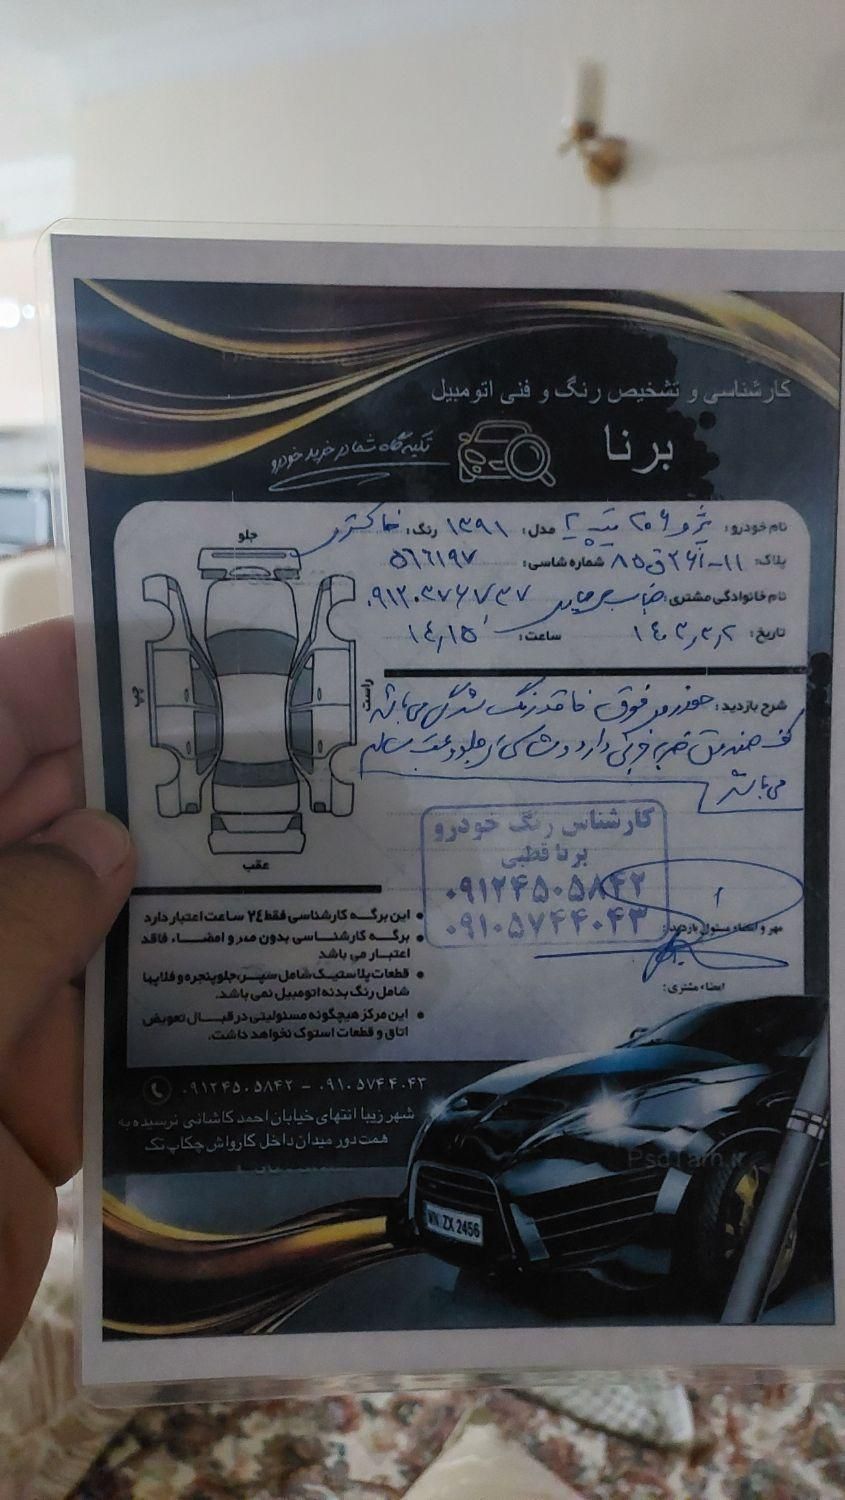 کارشناسی و تشخیص رنگ و فنی اتومبیل
برنا
تکیه گاه شما در خرید خودرو
نام خودرو: پژو ۲۰۶ تیپ ۲ مدل: ۱۳۹۱ رنگ: خاکستری
پلاک: ۱۱- ۸۵ شماره شاسی: ۵۶۶۱۹۷
نام خانوادگی مشتری: جناب ۰۹۱۲۰۳۷۶۷۳۷
تاریخ: ۱۴۰۳,۳,۲ ساعت: ۱۴,۱۵
شرح بازدید: خودرو فوق فاقد رنگ شدگی می باشد
کف صندوق ضرب خوردگی دارد و شاسی جلو و عقب سالم
می باشد
جلو
راست
چپ
عقب
کارشناس رنگ خودرو
برنا قطبی
۰۹۱۲۴۵۰۵۸۴۲
۰۹۱۰۵۷۴۴۰۴۳
مهر و امضاء مسئول بازدید:
امضاء مشتری:
این برگه کارشناسی فقط ۲۴ ساعت اعتبار دارد
برگه کارشناسی بدون مهر و امضاء فاقد
اعتبار می باشد
قطعات پلاستیک شامل سپر، جلوپنجره و فلاپها
شامل رنگ بدنه اتومبیل نمی باشد.
این مرکز هیچگونه مسئولیتی در قبال تعویض
اتاق و قطعات استوک نخواهد داشت.
۰۹۱۲۴۵۰۵۸۴۲ - ۰۹۱۰۵۷۴۴۰۴۳
شهر زیبا انتهای خیابان احمد کاشانی نرسیده به
همت دور میدان داخل کارواش چکاپ تک
WN ZX 2456